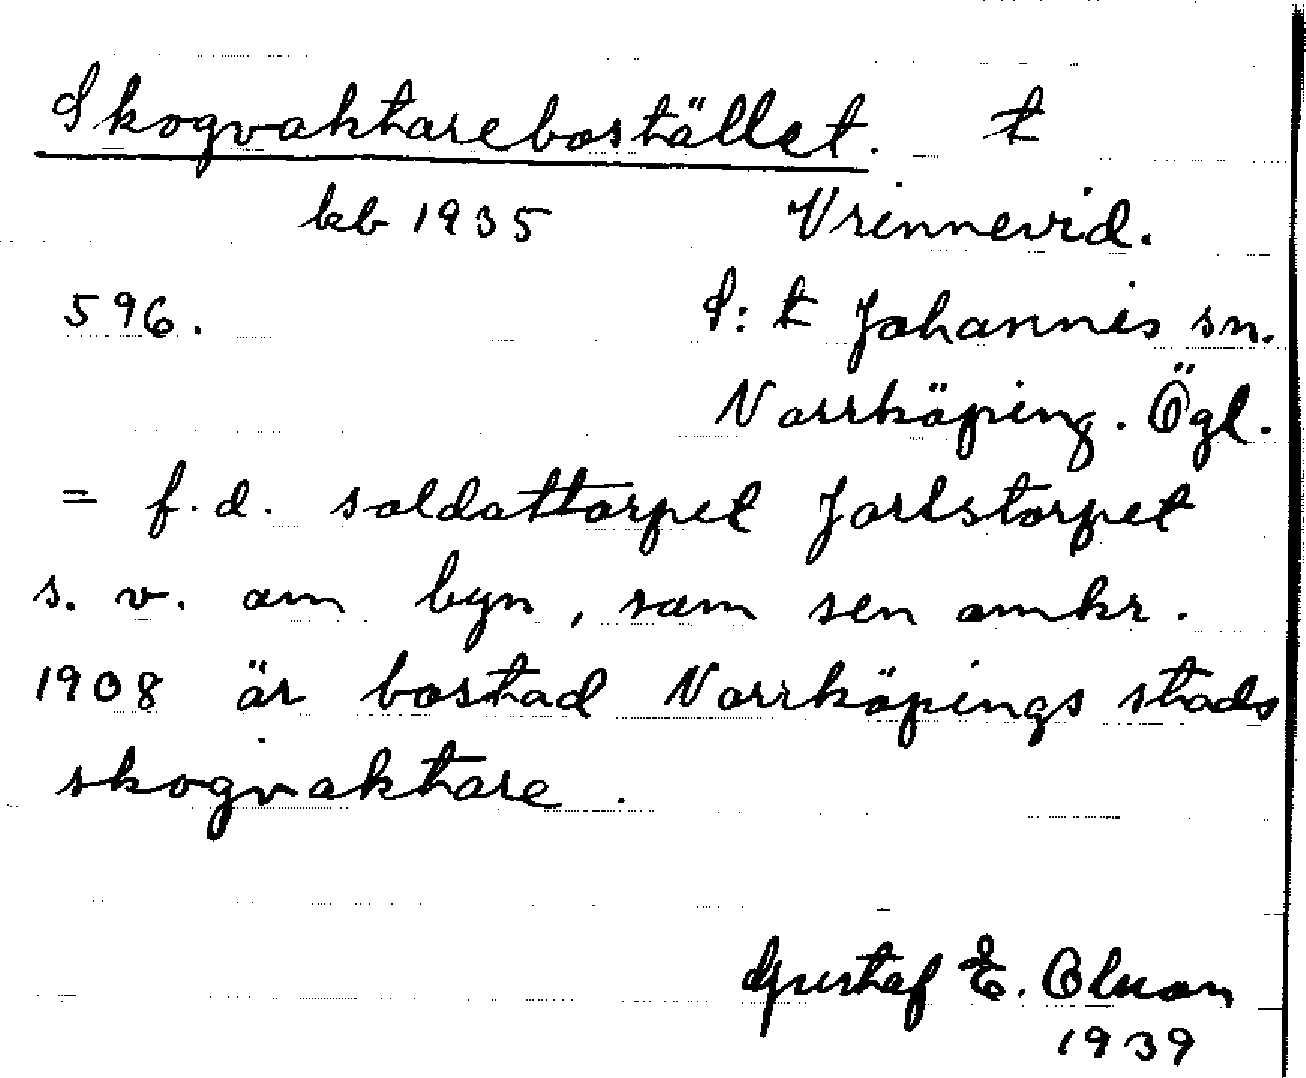 Skogvaktarebostället. t
kb 1935 Vrinnevid.
596. S:t Johannis sn.
Norrköping. Ögl.
= f.d. soldattorpet Jarlstorpet
s. v. om byn, som sen omkr.
1908 är bostad Norrköpings stads
skogvaktare.
Gustaf E. Olsson
1939